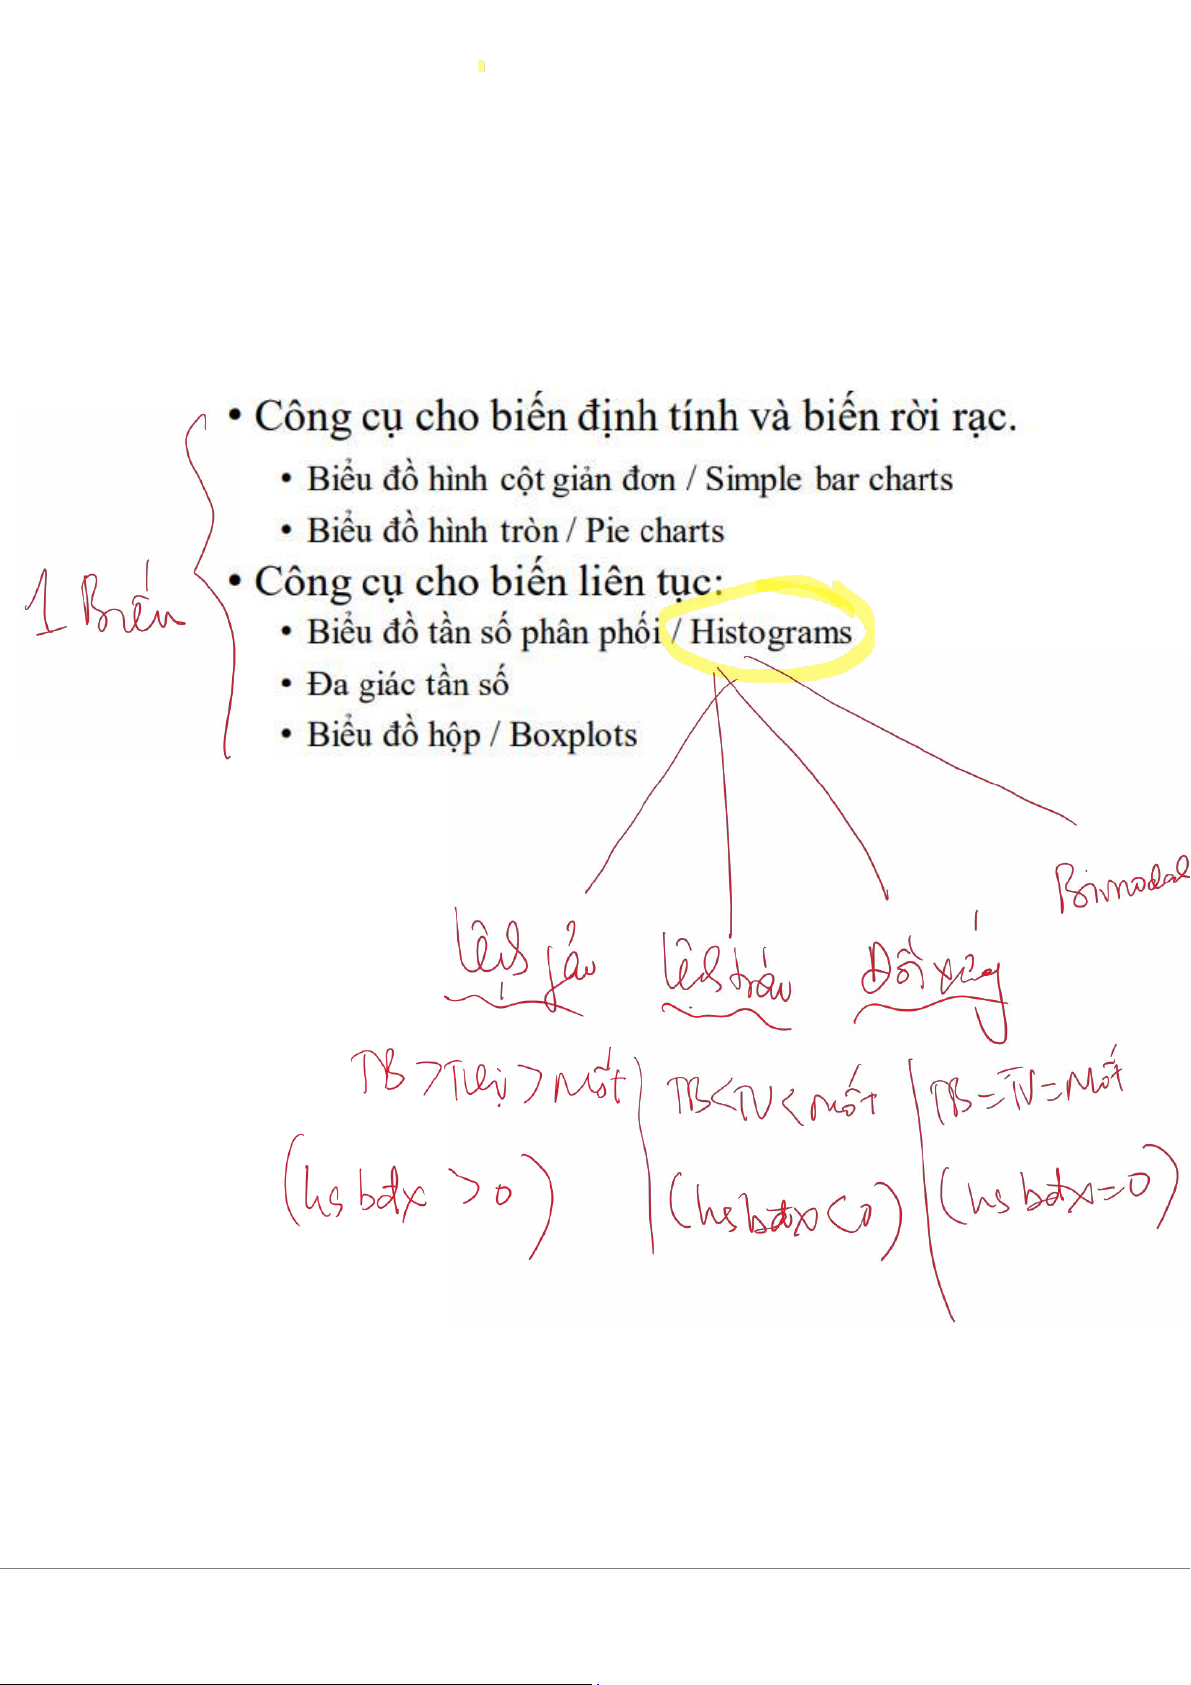 • Công cụ cho biến định tính và biến rời rạc.
• Biểu đồ hình cột giản đơn / Simple bar charts
• Biểu đồ hình tròn / Pie charts
1 Biến
• Công cụ cho biến liên tục:
• Biểu đồ tần số phân phối / Histograms
• Đa giác tần số
• Biểu đồ hộp / Boxplots
Bimodal
lệch phải lệch trái Đối xứng
TB > TVị > Mốt TB < TV < Mốt TB = TV = Mốt
(hsbđx > 0) (hsbđx < 0) (hsbđx = 0)